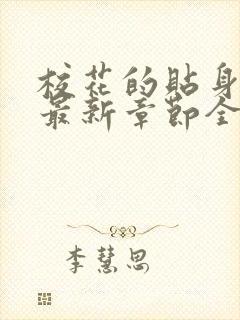 校花的贴身
最新章节全
李慧思